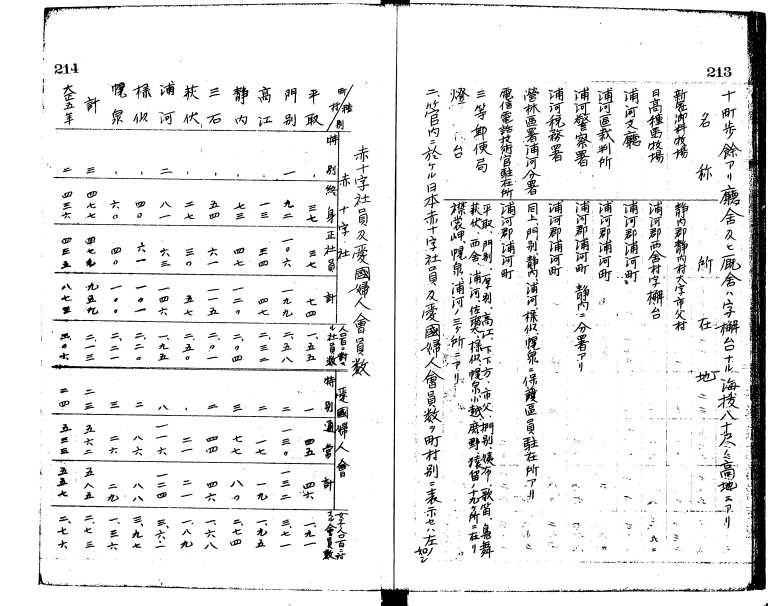 213
十町歩餘アリ廳舍及ヒ厩舍ハ字欟台ナル海拔八十尺ノ高地ニアリ
名稱 所在地
新冠御料牧場 静内郡静内村大字市父村
日高種馬牧場 浦河郡西舍村字欟台
浦河支廳 浦河郡浦河町
浦河區裁判所 浦河郡浦河町
浦河警察署 浦河郡浦河町 静内ニ分署アリ
浦河税務署 浦河郡浦河町
營林區署浦河分署 同上 門別静内浦河様似、幌泉ニ保護區員駐在所アリ
電信電話技術官駐在所 浦河郡浦河町
三等郵便局 平取、門別、厚別、高江、下下方、市父、捫別、
荻伏、西舍、浦河、様似、幌泉、小越、庶野、猿留ノ
燈台 襟裳岬、幌泉、浦河ノ三ヶ所ニアリ
二、管内ニ於ケル日本赤十字社員及愛國婦人會員数ヲ町村別ニ表示セハ左ノ如シ
214
赤十字社員及愛國婦人會員数
町村種別 赤十字社 愛國婦人會
特別 終身 正社員 計 人口百ニ對スル社員数 特別 通常 計
平取 、 三七 三七 七四 一、五五 一 四五 四六 一、九一
門別 一 九二 一〇六 一九九 二、五八 二 一三〇 一三二 三、七一
高江 、 一三 三四 四七 二、三二 二 一七 一九 一、九五
静内 、 七三 四七 一二〇 二、〇四 三 七七 八〇 二、七四
三石 、 五四 六一 一一五 二、〇一 二 四四 四六 一、六八
荻伏 、 二七 三〇 五七 二、五〇 、 二一 二一 一、八九
浦河 二 八一 六三 一四六 一、九五 八 一一六 一二四 三、六二
様似 、 四〇 六一 一〇一 二、二〇 二 八六 八八 三、九七
幌泉 、 六〇 四〇 一〇〇 二、二一 三 二六 二九 一、三六
計 三 四七七 四七九 九五九 二、一三 二三 五六二 五八五 二、七三
大正五年 二 四三六 四三五 八七三 三、〇六 二四 五三三 五五七 二、七六